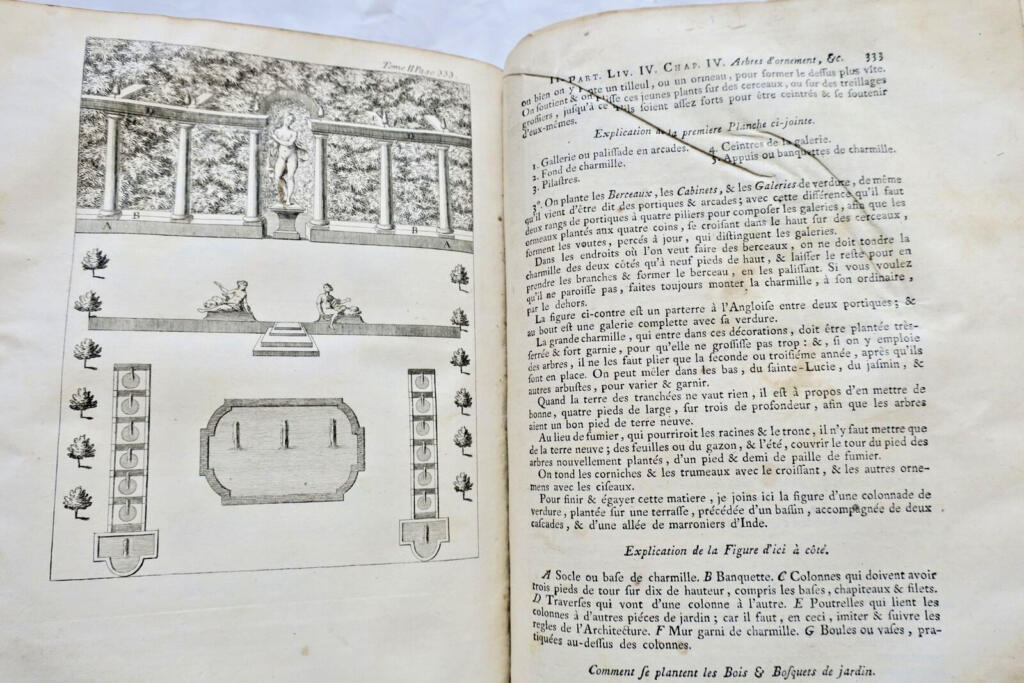 Tome II Page 333.
D
D
B
A
B
A
II. PART. LIV. IV. CHAP. IV. Arbres d'ornement, &c. 333
ou bien on y plante un tilleul, ou un ormeau, pour former le deſſus plus vîte.
On ſoutient & on paliſſe ces jeunes plants ſur des cerceaux, ou ſur des treillages
groſſiers, juſqu'à ce qu'ils ſoient aſſez forts pour être ceintrés & ſe ſoutenir
d'eux-mêmes.
Explication de la premiere Planche ci-jointe.
1. Gallerie ou paliſſade en arcades. 4. Ceintres de la galerie.
2. Fond de charmille. 5. Appuis ou banquettes de charmille.
3. Pilaſtres.
3°. On plante les Berceaux, les Cabinets, & les Galeries de verdure, de même
qu'il vient d'être dit des portiques & arcades; avec cette différence qu'il faut
deux rangs de portiques à quatre piliers pour compoſer les galeries, afin que les
ormeaux plantés aux quatre coins, ſe croiſant dans le haut ſur des cerceaux,
forment les voutes, percés à jour, qui diſtinguent les galeries.
Dans les endroits où l'on veut faire des berceaux, on ne doit tondre la
charmille des deux côtés qu'à neuf pieds de haut, & laiſſer le reſte pour en
prendre les branches & former le berceau, en les paliſſant. Si vous voulez
qu'il ne paroiſſe pas, faites toujours monter la charmille, à ſon ordinaire,
par le dehors.
La figure ci-contre eſt un parterre à l'Angloiſe entre deux portiques; &
au bout eſt une galerie complette avec ſa verdure.
La grande charmille, qui entre dans ces décorations, doit être plantée très-
ſerrée & fort garnie, pour qu'elle ne groſſiſſe pas trop: &, ſi on y emploie
des arbres, il ne les faut plier que la ſeconde ou troiſiéme année, après qu'ils
ſont en place. On peut mêler dans les bas, du ſainte-Lucie, du jaſmin, &
autres arbuſtes, pour varier & garnir.
Quand la terre des tranchées ne vaut rien, il eſt à propos d'en mettre de
bonne, quatre pieds de large, ſur trois de profondeur, afin que les arbres
aient un bon pied de terre neuve.
Au lieu de fumier, qui pourriroit les racines & le tronc, il n'y faut mettre que
de la terre neuve; des feuilles ou du gazon, & l'été, couvrir le tour du pied des
arbres nouvellement plantés, d'un pied & demi de paille de fumier.
On tond les corniches & les trumeaux avec le croiſſant, & les autres orne-
mens avec les ciſeaux.
Pour finir & égayer cette matiere, je joins ici la figure d'une colonnade de
verdure, plantée ſur une terraſſe, précédée d'un baſſin, accompagnée de deux
caſcades, & d'une allée de marroniers d'Inde.
Explication de la Figure d'ici à côté.
A Socle ou baſe de charmille. B Banquette. C Colonnes qui doivent avoir
trois pieds de tour ſur dix de hauteur, compris les baſes, chapiteaux & filets.
D Traverſes qui vont d'une colonne à l'autre. E Poutrelles qui lient les
colonnes à d'autres piéces de jardin; car il faut, en ceci, imiter & ſuivre les
regles de l'Architecture. F Mur garni de charmille. G Boules ou vaſes, pra-
tiquées au-deſſus des colonnes.
Comment ſe plantent les Bois & Boſquets de jardin.